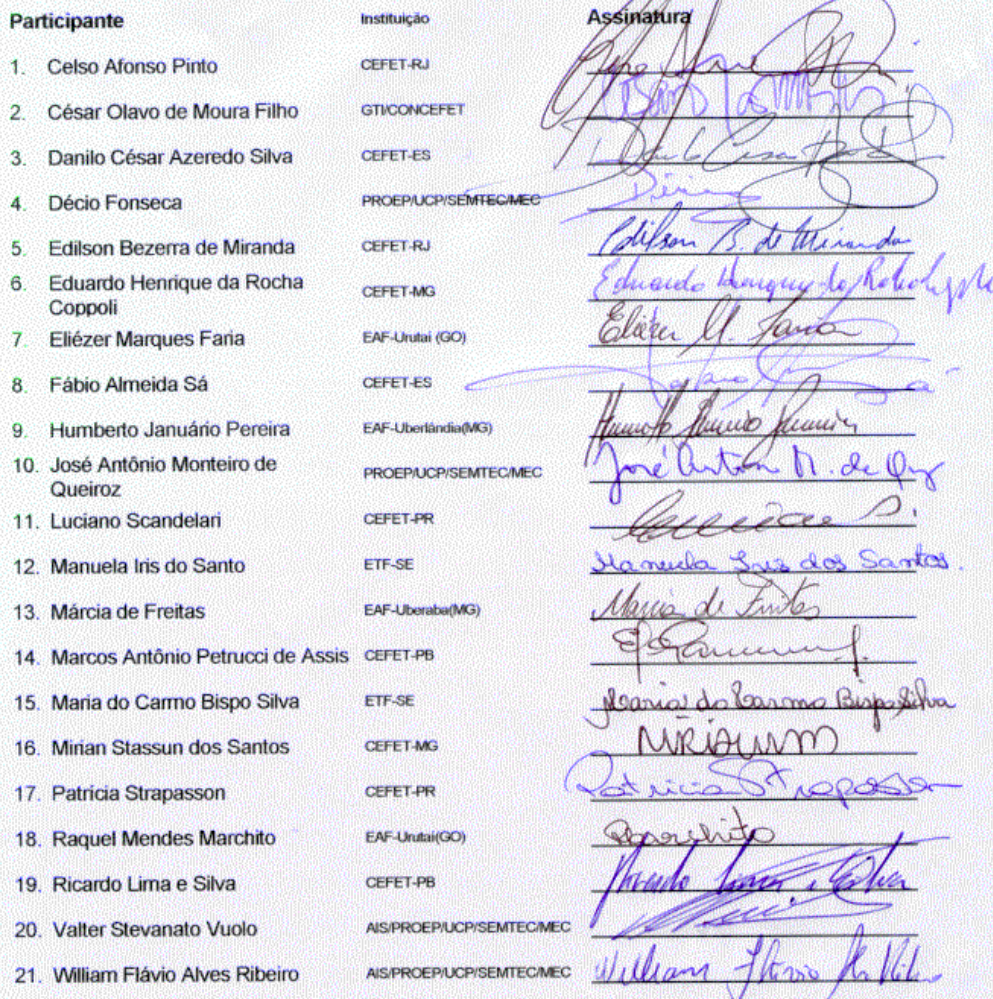 Participante Instituição Assinatura
1. Celso Afonso Pinto CEFET-RJ
2. César Olavo de Moura Filho GTI/CONCEFET
3. Danilo César Azeredo Silva CEFET-ES
4. Décio Fonseca PROEP/UCP/SEMTEC/MEC Décio
5. Edilson Bezerra de Miranda CEFET-RJ Edilson B. de Miranda
6. Eduardo Henrique da Rocha CEFET-MG Eduardo Henrique da Rocha
Coppoli
7. Eliézer Marques Faria EAF-Urutaí (GO) Eliézer M. Faria
8. Fábio Almeida Sá CEFET-ES
9. Humberto Januário Pereira EAF-Uberlândia(MG) Humberto Januário Pereira
10. José Antônio Monteiro de PROEP/UCP/SEMTEC/MEC José Anton M. de
Queiroz
11. Luciano Scandelari CEFET-PR
12. Manuela Iris do Santo ETF-SE Manuela Iris dos Santos.
13. Márcia de Freitas EAF-Uberaba(MG) Marcia de Freitas
14. Marcos Antônio Petrucci de Assis CEFET-PB
15. Maria do Carmo Bispo Silva ETF-SE Maria do Carmo Bispo Silva
16. Mirian Stassun dos Santos CEFET-MG
17. Patrícia Strapasson CEFET-PR Patricia Strapasson
18. Raquel Mendes Marchito EAF-Urutaí(GO) RMarchito
19. Ricardo Lima e Silva CEFET-PB Ricardo Lima e Silva
20. Valter Stevanato Vuolo AIS/PROEP/UCP/SEMTEC/MEC
21. William Flávio Alves Ribeiro AIS/PROEP/UCP/SEMTEC/MEC William Flávio